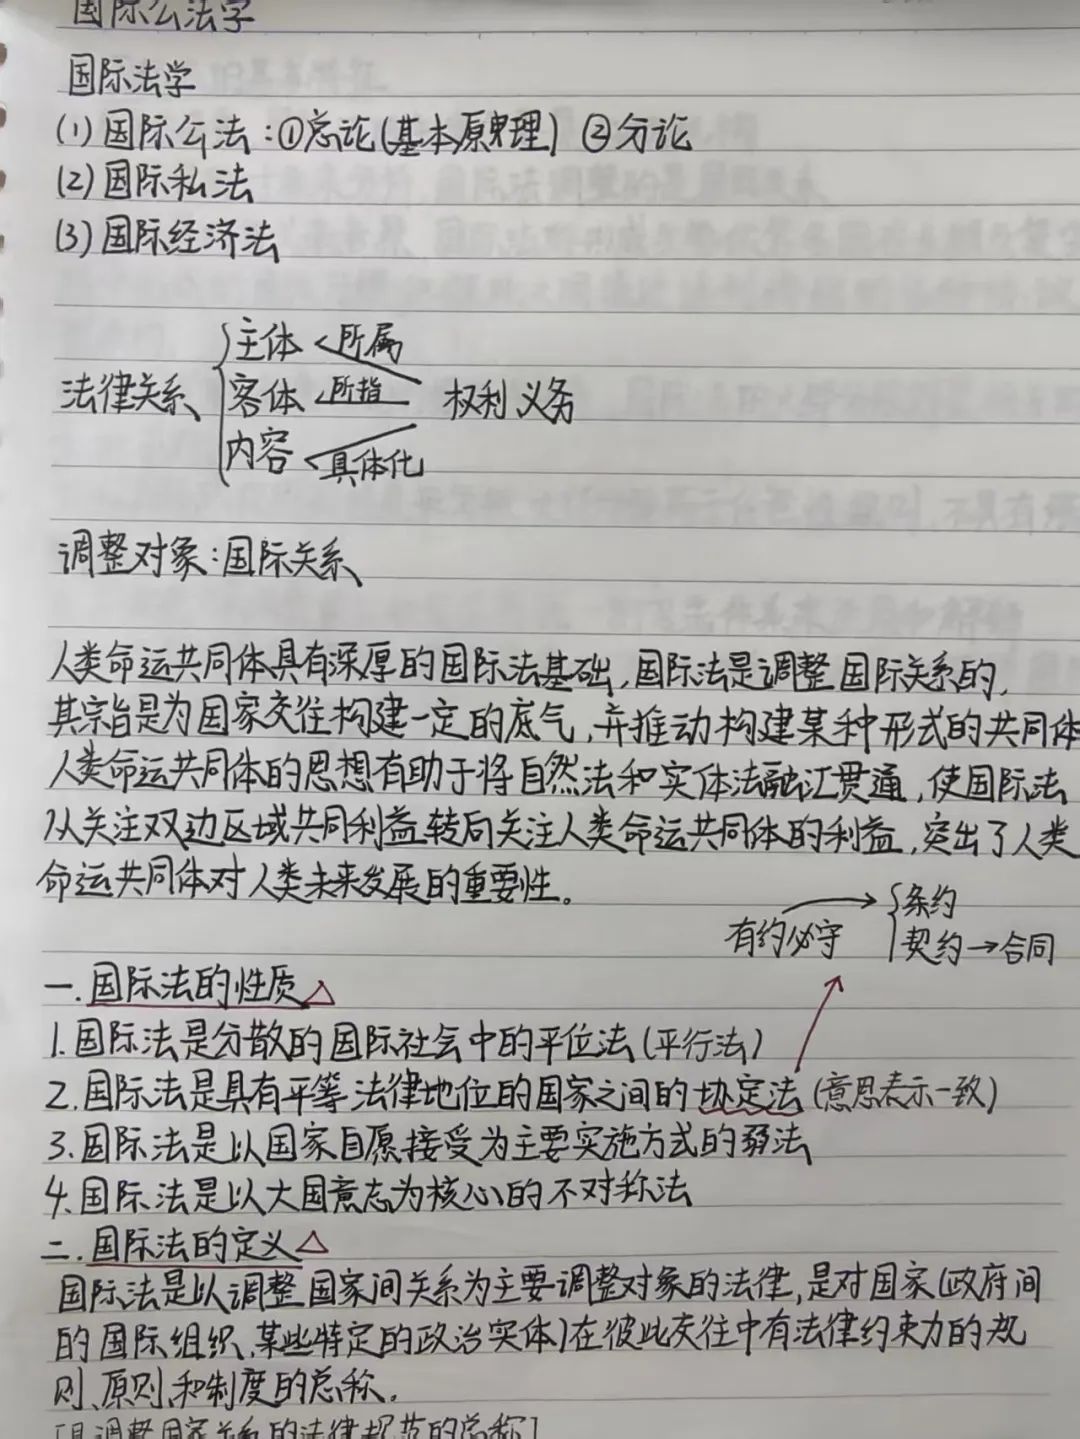 国际公法学
国际法学
(1)国际公法:①总论(基本原理) ②分论
(2)国际私法
(3)国际经济法
主体 所属
法律关系 客体 所指 权利义务
内容 具体化
调整对象:国际关系
人类命运共同体具有深厚的国际法基础,国际法是调整国际关系的,
其宗旨是为国家交往构建一定的底气,并推动构建某种形式的共同体
人类命运共同体的思想有助于将自然法和实体法融汇贯通,使国际法
从关注双边区域共同利益转向关注人类命运共同体的利益,突出了人类
命运共同体对人类未来发展的重要性。
有约必守 → 条约
契约→合同
一.国际法的性质△
1.国际法是分散的国际社会中的平位法(平行法)
2.国际法是具有平等法律地位的国家之间的协定法(意思表示一致)
3.国际法是以国家自愿接受为主要实施方式的弱法
4.国际法是以大国意志为核心的不对称法
二.国际法的定义△
国际法是以调整国家间关系为主要调整对象的法律,是对国家(政府间
的国际组织、某些特定的政治实体)在彼此交往中有法律约束力的规
则、原则和制度的总称。
[是调整国家关系的法律规范的总称]